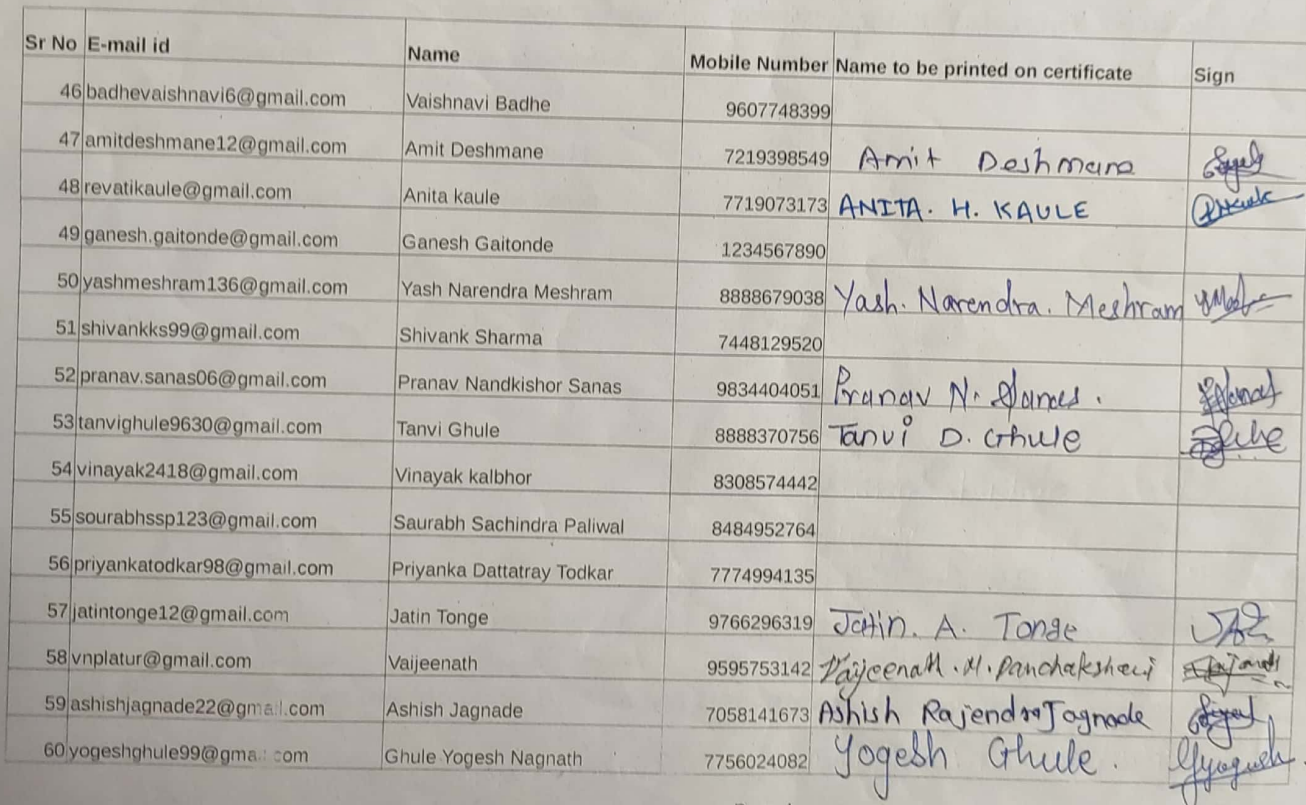 Sr No E-mail id Name Mobile Number Name to be printed on certificate Sign
46 badhevaishnavi6@gmail.com Vaishnavi Badhe 9607748399
47 amitdeshmane12@gmail.com Amit Deshmane 7219398549 Amit Deshmane
48 revatikaule@gmail.com Anita kaule 7719073173 ANITA. H. KAULE
49 ganesh.gaitonde@gmail.com Ganesh Gaitonde 1234567890
50 yashmeshram136@gmail.com Yash Narendra Meshram 8888679038 Yash. Narendra. Meshram
51 shivankks99@gmail.com Shivank Sharma 7448129520
52 pranav.sanas06@gmail.com Pranav Nandkishor Sanas 9834404051 Pranav N. Sanas.
53 tanvighule9630@gmail.com Tanvi Ghule 8888370756 Tanvi D. Ghule
54 vinayak2418@gmail.com Vinayak kalbhor 8308574442
55 sourabhssp123@gmail.com Saurabh Sachindra Paliwal 8484952764
56 priyankatodkar98@gmail.com Priyanka Dattatray Todkar 7774994135
57 jatintonge12@gmail.com Jatin Tonge 9766296319 Jatin. A. Tonge
58 vnplatur@gmail.com Vaijeenath 9595753142 Vaijeenath. N. Panchakshari
59 ashishjagnade22@gmail.com Ashish Jagnade 7058141673 Ashish Rajendra Jagnade
60 yogeshghule99@gmail.com Ghule Yogesh Nagnath 7756024082 Yogesh Ghule.